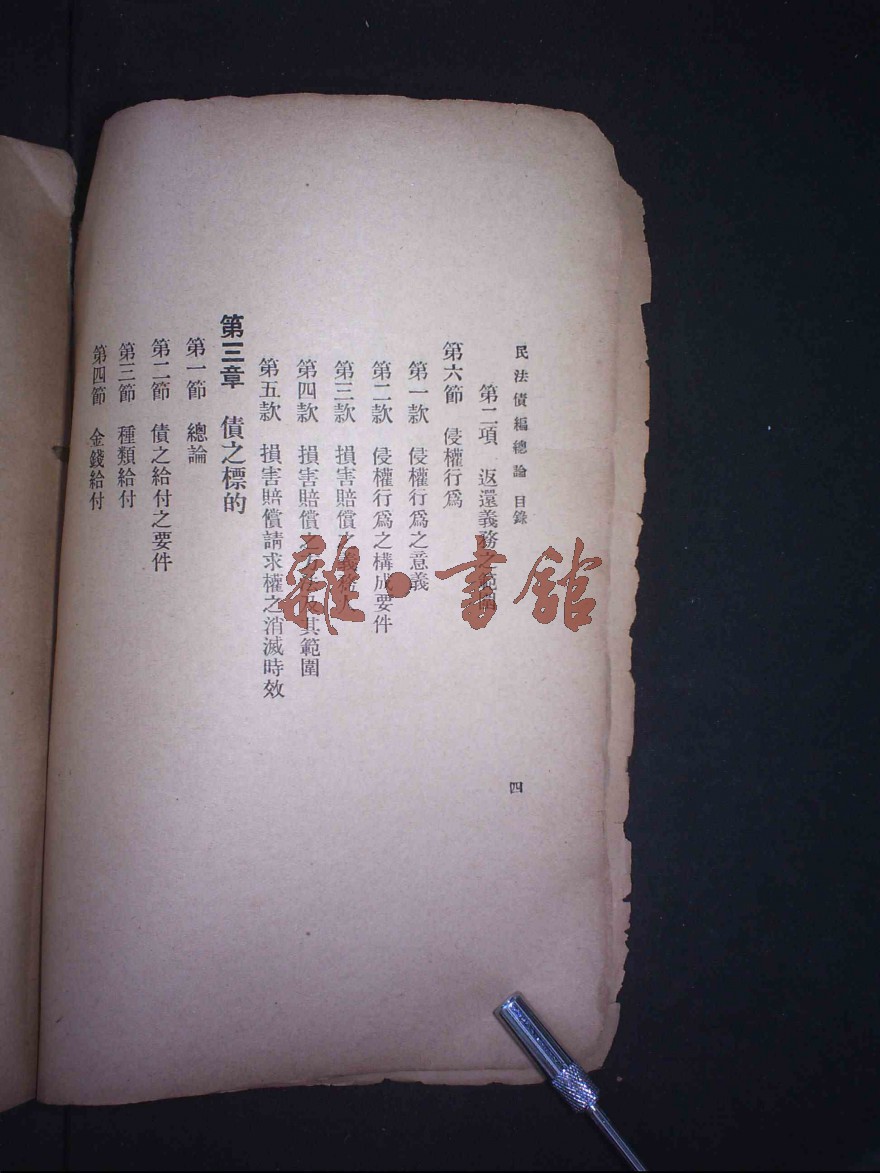 民法債編總論 目錄
四
第二項 返還義務之範圍
第六節 侵權行爲
第一款 侵權行爲之意義
第二款 侵權行爲之構成要件
第三款 損害賠償之義務人
第四款 損害賠償之方法及其範圍
第五款 損害賠償請求權之消滅時效
第三章 債之標的
第一節 總論
第二節 債之給付之要件
第三節 種類給付
第四節 金錢給付
雜·書館